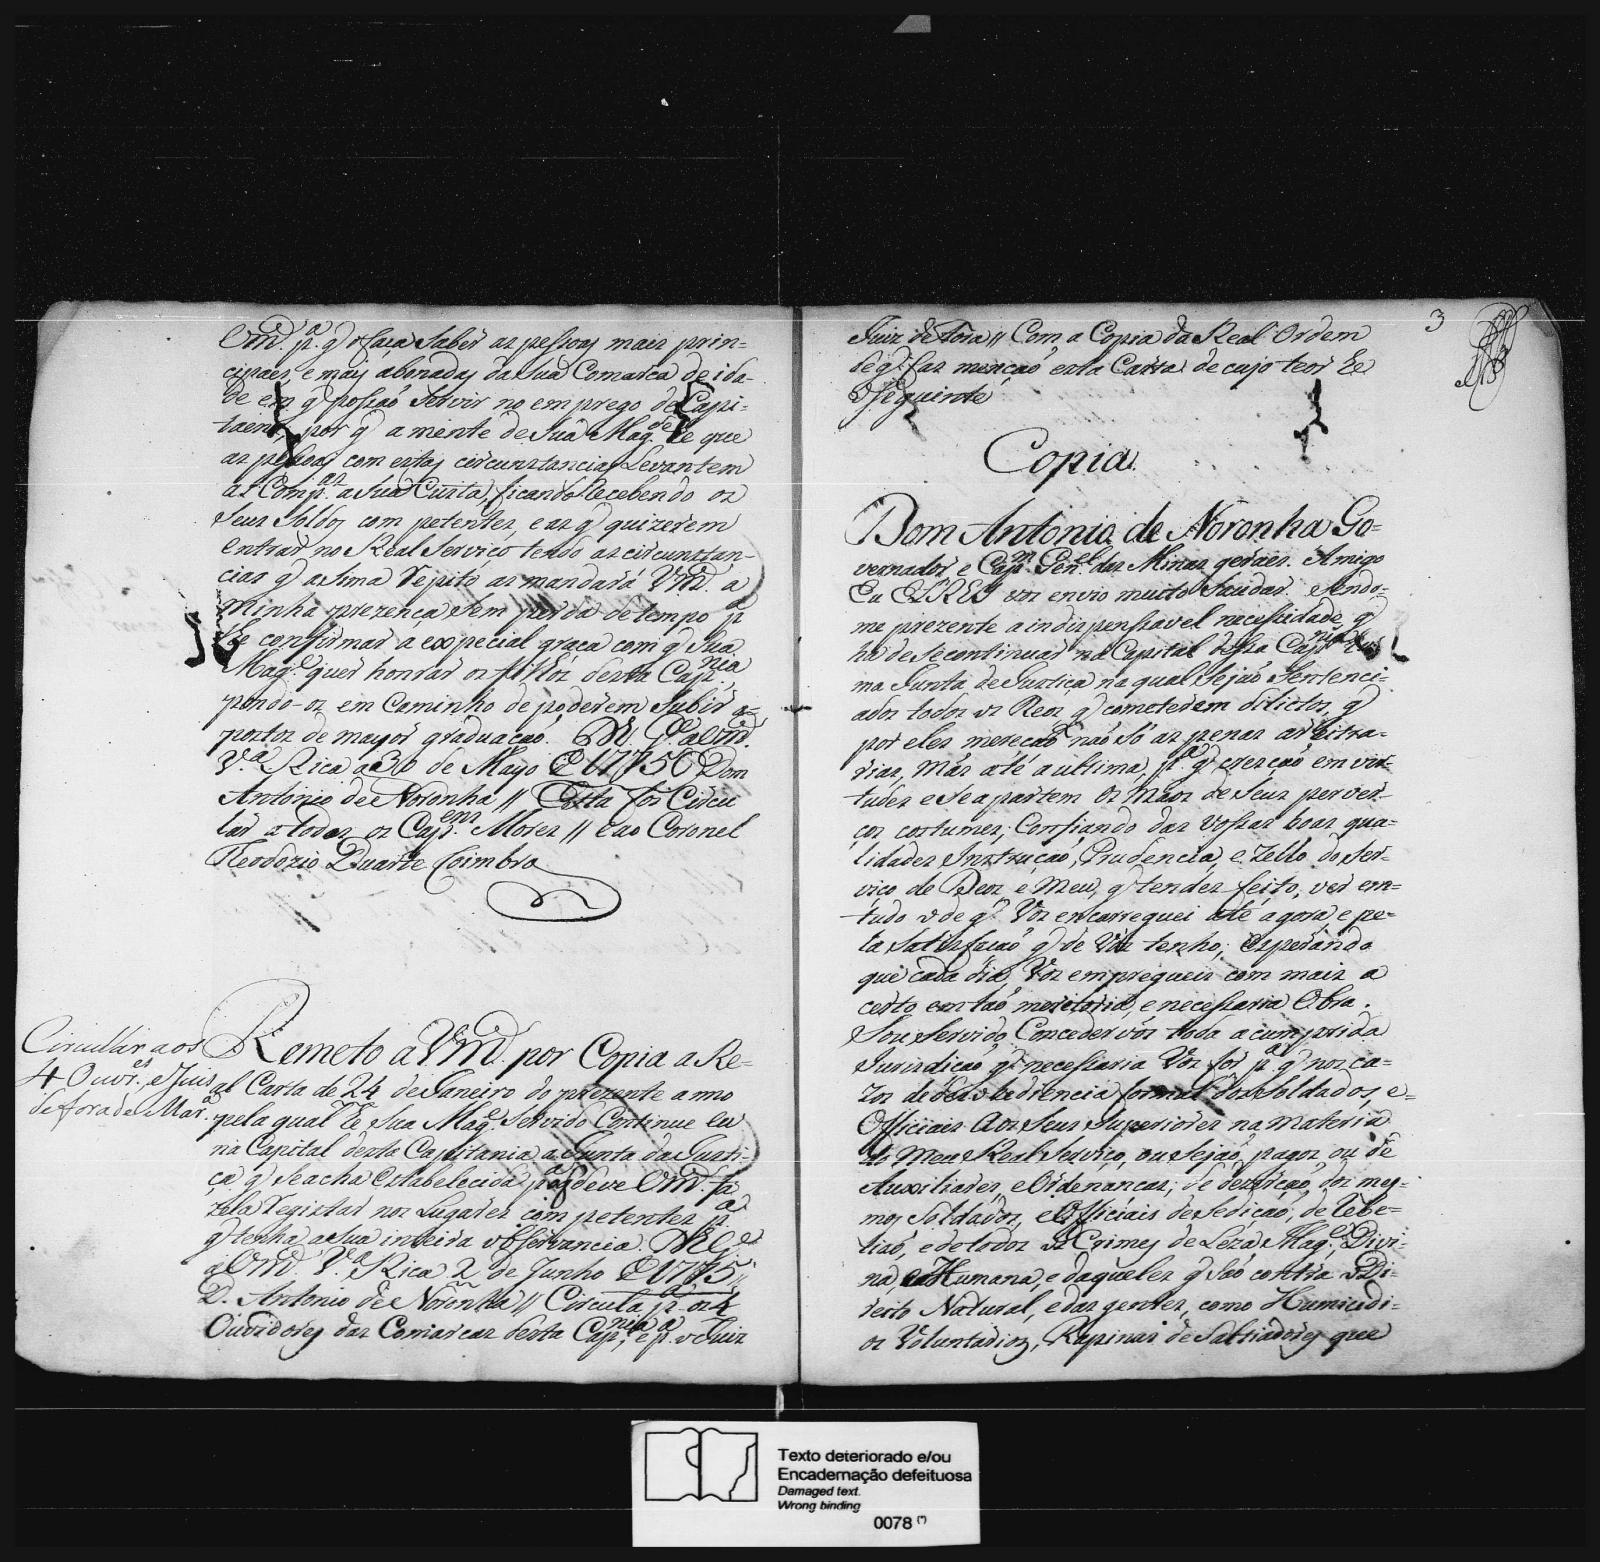 Vm.ᶜᵉ p.ᵃ q̃ faça Saber as pessoas mais prin=
cipaes, e mais abonadas da Sua Comarca de ida-
de em q̃ possaõ Servir no emprego de Capi=
taens, por q̃ a mente de Sua Mag.ᵈᵉ he que
as pessoas com estas circunstancias Levantem
as Comp.ᵃˢ a Sua Custa, ficando Recebendo os
Seus Soldos competentes, e as q̃ quizerem
entrar no Real Serviço tendo as circunstan-
cias q̃ asima Repito, as mandará Vm.ᶜᵉ a
minha prezença Sem perda de tempo p.ᵃ
lhe confirmar a expecial graça com q̃ Sua
Mag.ᵉ quer honrar os desta Cap.ⁿⁱᵃ,
pondo-os em Caminho de poderem Subir a-
postos de mayor graduaçaõ.
V.ᵃ Rica a 30 de Mayo de 1775 Dom
Antonio de Noronha // Esta foi Circu
lar a todos os Cap.ᵉⁿˢ Mores // e ao Coronel
Theodozio Duarte Coimbra
Circullar aos
4 Ouv.ᵉˢ, e Juis
de fora de Mar.ᵃ
Remeto a Vm.ᶜᵉ por Copia a Re=
al Carta de 24 de Janeiro do prezente anno
pela qual he Sua Mag.ᵉ Servido Continue eu
na Capital desta Capitania a Junta da Justi=
ça q̃ Se acha Estabelecida, deve Vm.ᶜᵉ fa
zela Registar nos Lugares competentes p.ᵃ
q̃ tenha a Sua inteira observancia. D.ˢ G.ᵉ
a Vm.ᶜᵉ V.ᵃ Rica 2 de Junho de 1775 //
D. Antonio de Noronha // Circular p.ᵃ os 4
Ouvidores das Comarcas desta Cap.ⁿⁱᵃ, e p.ᵃ o Juiz
3
Juiz de Fora // Com a Copia da Real Ordem
de q̃ faz mençaõ esta Carta de cujo teor he
o Seguinte
Copia
Dom Antonio de Noronha Go=
vernador e Cap.ᵐ Gen.ᵉˡ das Minas geraes. Amigo
Eu ELREY vos envio muito Saudar. Sendo=
me prezente a indispensavel necessidade, q̃
ha de Se continuar na Capital dessa Cap.ⁿⁱᵃ
ma Junta de Justiça na qual Sejaõ Sentenci=
ados todos os Reos q̃ cometerem dilictos, q̃
por eles mereçaõ naõ Só as penas arbitra=
rias, Mas até a ultima, p.ᵃ q̃ creçaõ em vir=
tudes e Se apartem os Maos de Seus perver=
ços costumes; Confiando das vossas boas qua=
lidades Instruçaõ, Prudencia, e Zello do Ser=
viço de Deos e Meu, q̃ tendes feito, ver em=
tudo o de q̃ Vos encarreguei até agora e pe=
la Satisfaçaõ q̃ de Vós tenho; esperando
que cada dia Vos empregueis com mais a
certo em taõ meritoria, e necessaria Obra.
Sou Servido Concedervos toda a cumprida
Jurisdiçaõ q̃ necessaria Vos for p.ᵃ q̃ nos ca=
zos de desobediencia formal dos Soldados, e=
Officiaes aos Seus Superiores na materia
do Meu Real Serviço, ou Sejaõ pagos, ou de
Auxiliares, e Ordenanças; de dezerçaõ dos mes=
mos Soldados, e Officiais de Sediçaõ; de Rebe=
liaõ, e de todos os Crimes de Leza Mag.ᵉ Divi=
na, e Humana, e daqueles q̃ Saõ contra o Di=
reito Natural, e das gentes, como Humicidi=
os Voluntarios, Rapinas de Salteadores que
Texto deteriorado e/ou
Encadernação defeituosa
Damaged text.
Wrong binding
0078 (*)